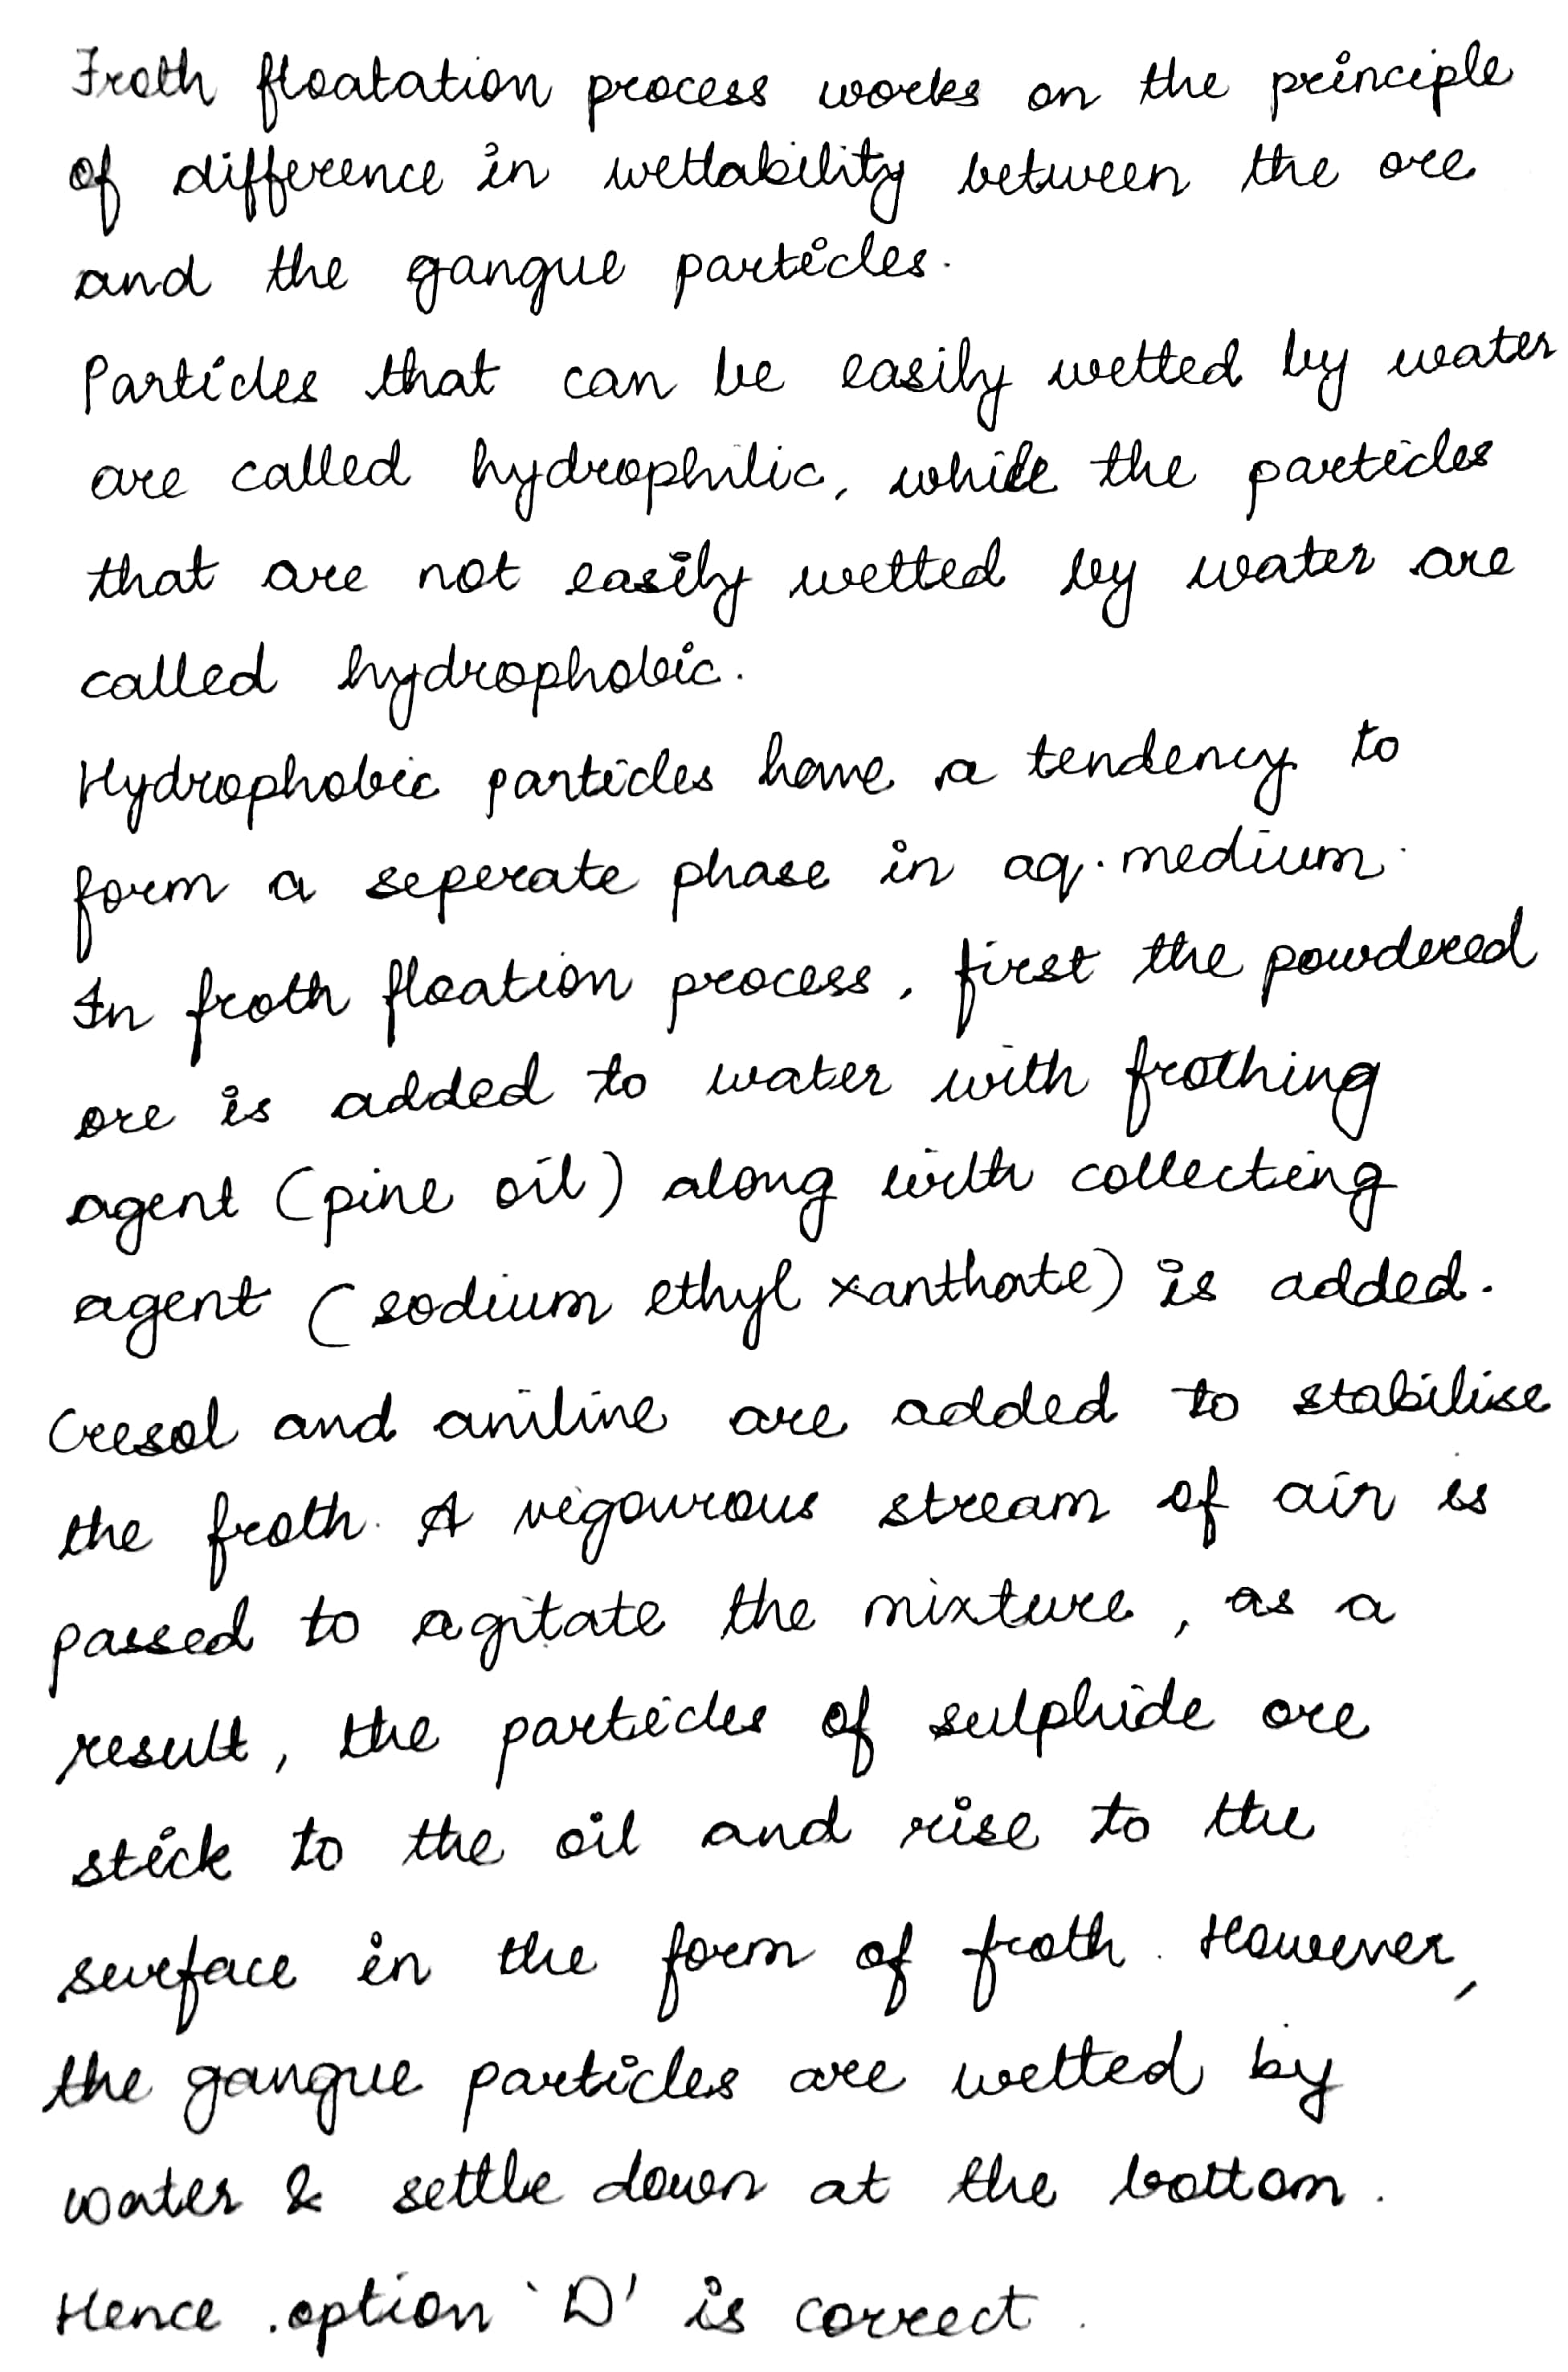 Froth floatation process works on the principle
of difference in wettability between the ore
and the gangue particles.
Particles that can be easily wetted by water
are called hydrophilic, while the particles
that are not easily wetted by water are
called hydrophobic.
Hydrophobic particles have a tendency to
form a seperate phase in aq. medium.
In froth floation process, first the powdered
ore is added to water with frothing
agent (pine oil) along with collecting
agent (sodium ethyl xanthate) is added.
Cresol and aniline are added to stabilise
the froth. A vigourous stream of air is
passed to agitate the mixture, as a
result, the particles of sulphide ore
stick to the oil and rise to the
surface in the form of froth. However,
the gangue particles are wetted by
water & settle down at the bottom.
Hence option 'D' is correct.